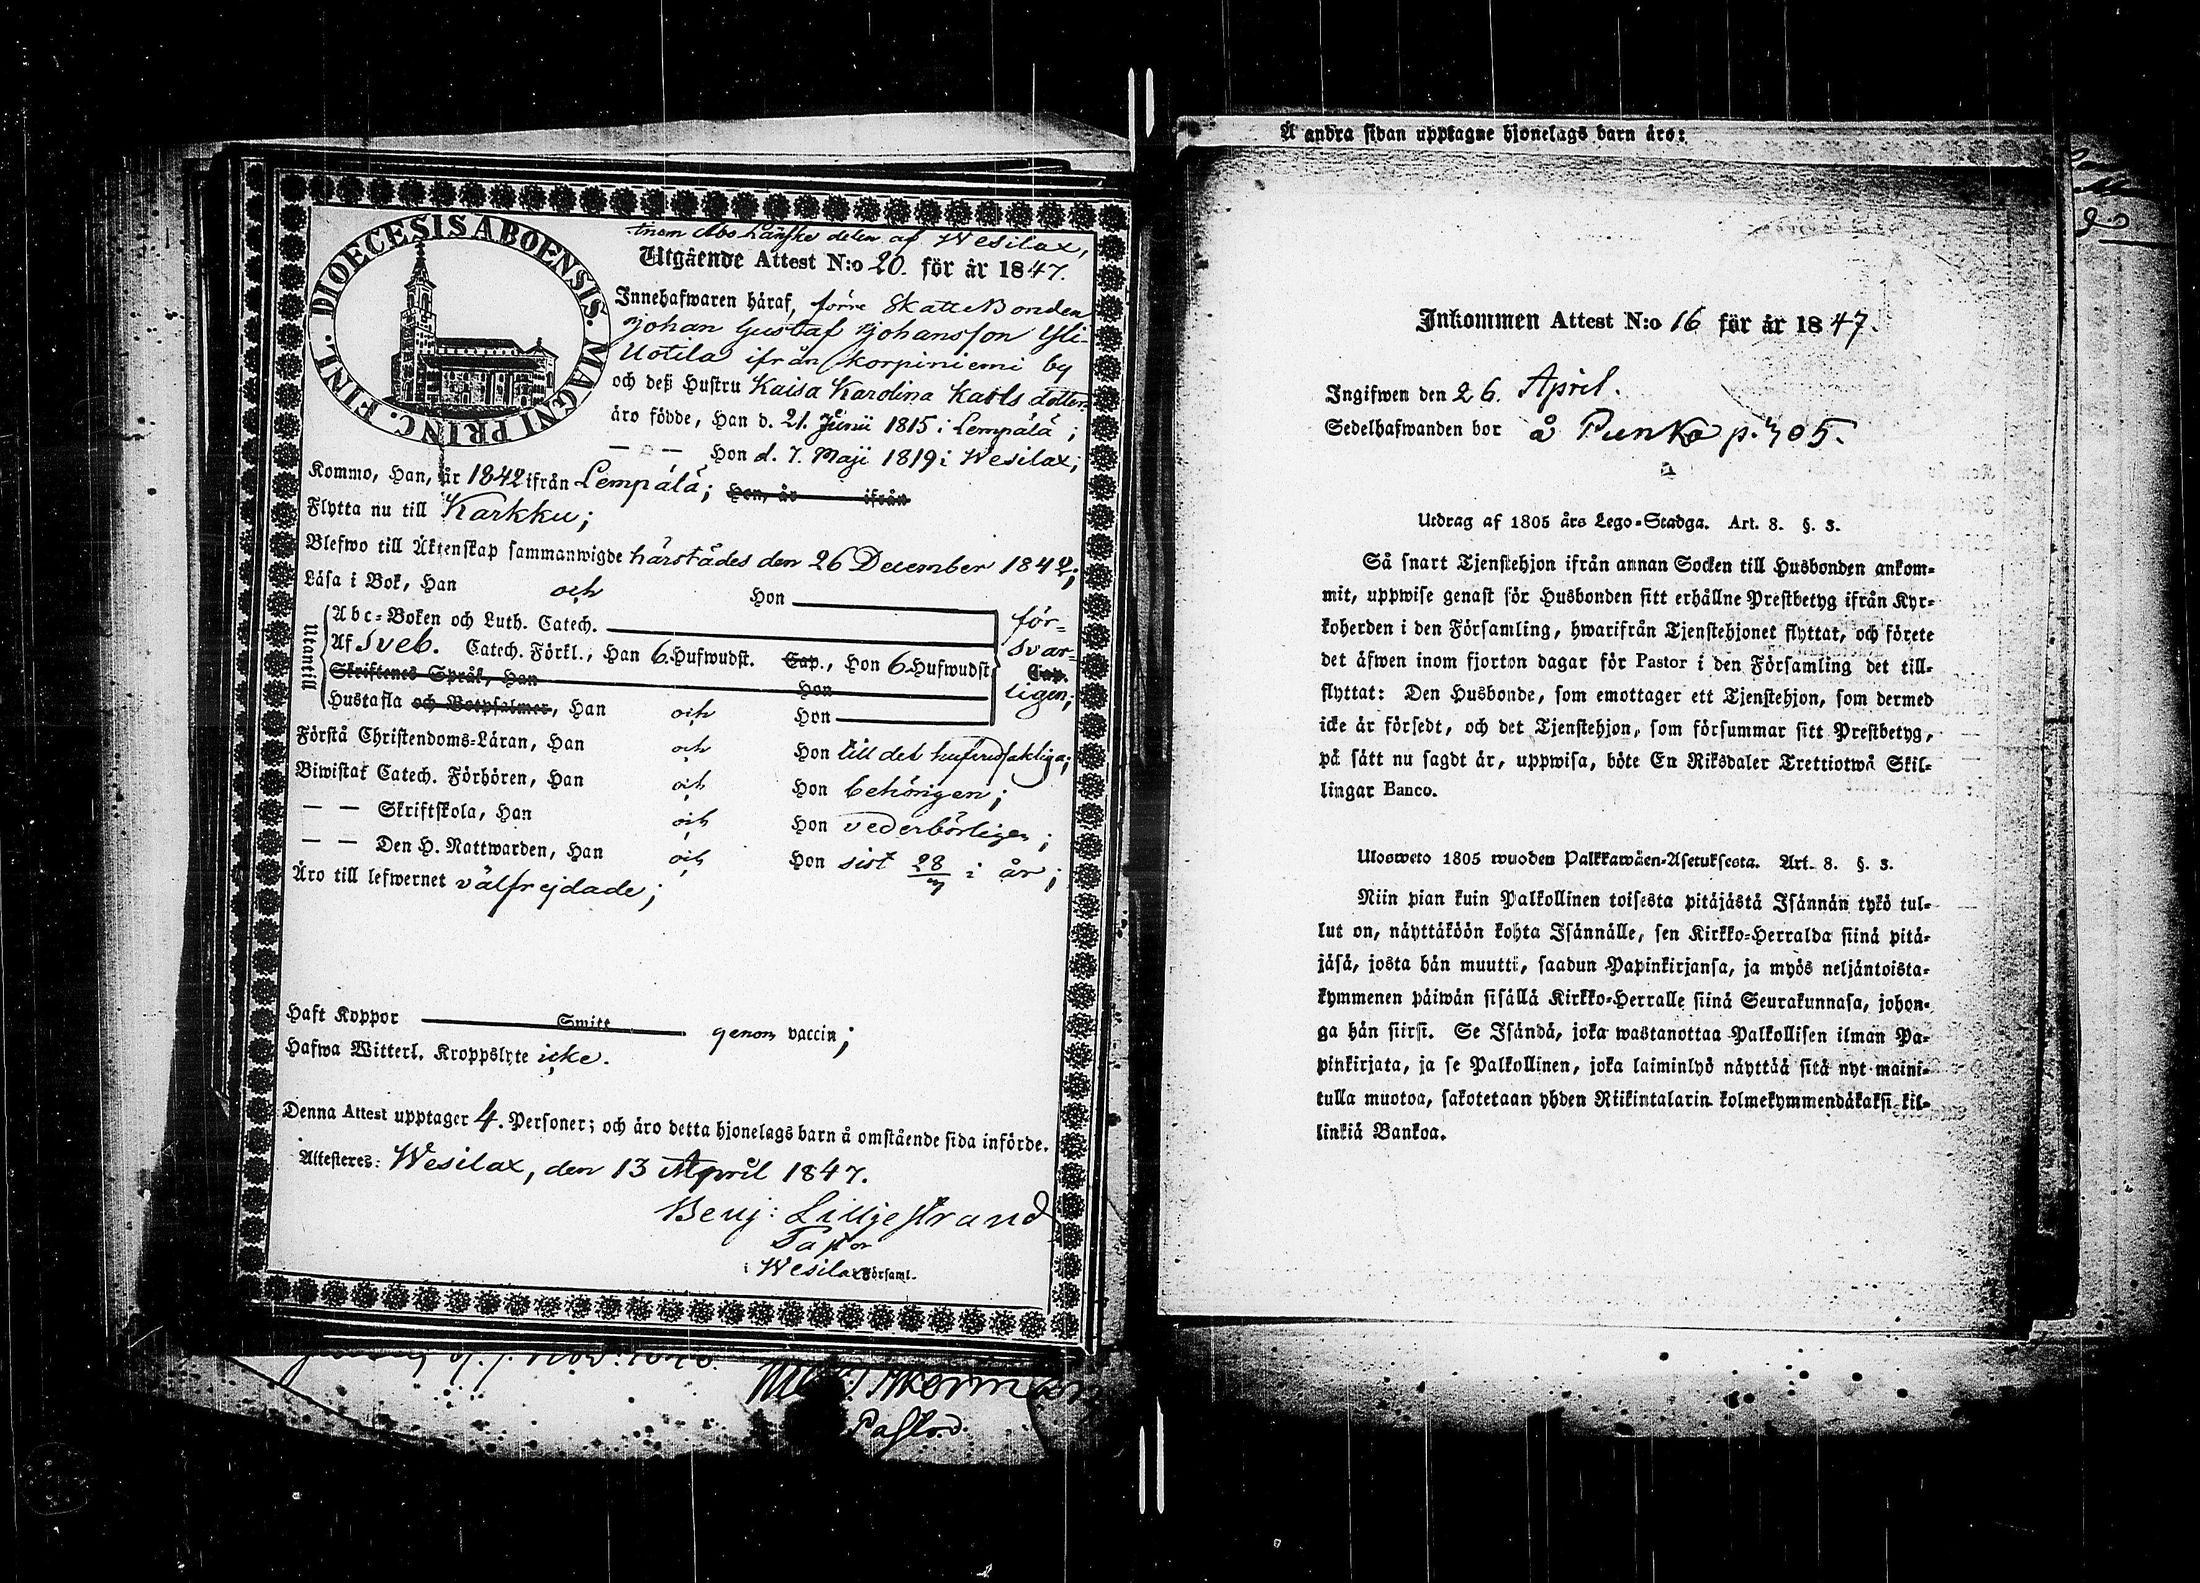 DIOECESIS ABOENSIS. MAGNI PRINC. FINL.
inom Åbo Länske delen af Wesilax,
Utgående Attest N:o 20. för år 1847.
Innehafwaren häraf, förre SkatteBonden
Johan Gustaf Johansson Yli-
Uotila ifrån Korpiniemi by
och deß Hustru Kaisa Karolina Karls dotter
äro födde, Han d. 21. Junii 1815 i Lempälä;
— — Hon d. 7. Maji 1819 i Wesilax;
Kommo, Han, år 1842 ifrån Lempälä; Hon, år ifrån
Flytta nu till Karkku;
Blefwo till Äktenskap sammanwigde härstädes den 26 December 1842;
Läsa i Bok, Han och Hon
Utantill
Abc-Boken och Luth. Catech. för-
Af Sveb. Catech. Förkl., Han 6. Hufwudst. Cap., Hon 6. Hufwudst. Cap. svar-
Skriftenes Språk, Han Hon ligen;
Hustafla och Botpsalmer, Han och Hon
Förstå Christendoms-Läran, Han och Hon till det hufvudsakliga;
Biwistat Catech. Förhören, Han och Hon behörigen;
— — Skriftskola, Han och Hon vederbörligen;
— — Den H. Nattwarden, Han och Hon sist 28/7 i år;
Äro till lefwernet välfrejdade;
Haft Koppor Smitt genom vaccin;
Hafwa Witterl. Kroppslyte icke.
Denna Attest upptager 4. Personer; och äro detta hjonelags barn å omstående sida införde.
Attesteres: Wesilax, den 13 April 1847.
Benj: Lilljestrand
Pastor
i Wesilax Församl.
Pastor.
Å andra sidan upptagne hjonelags barn äro:
Inkommen Attest N:o 16 för år 1847.
Ingifwen den 26. April.
Sedelhafwanden bor å Punko p. 705.
Utdrag af 1805 års Lego-Stadga. Art. 8. §. 3.
Så snart Tjenstehjon ifrån annan Socken till Husbonden ankom-
mit, uppwise genast för Husbonden sitt erhållne Prestbetyg ifrån Kyr-
koherden i den Församling, hwarifrån Tjenstehjonet flyttat, och förete
det äfwen inom fjorton dagar för Pastor i den Församling det till-
flyttat: Den Husbonde, som emottager ett Tjenstehjon, som dermed
icke är försedt, och det Tjenstehjon, som försummar sitt Prestbetyg,
på sätt nu sagdt är, uppwisa, böte En Riksdaler Trettiotwå Skil-
lingar Banco.
Ulosweto 1805 wuoden Palkkawäen-Asetuksesta. Art. 8. §. 3.
Niin pian kuin Palkollinen toisesta pitäjästä Isännän tykö tul-
lut on, näyttäköön kohta Isännälle, sen Kirkko-Herralda siinä pitä-
jäsä, josta hän muutti, saadun Papinkirjansa, ja myös neljäntoista-
kymmenen päiwän sisällä Kirkko-Herralle siinä Seurakunnasa, johon-
ga hän siirsi. Se Isändä, joka wastanottaa Palkollisen ilman Pa-
pinkirjata, ja se Palkollinen, joka laiminlyö näyttää sitä nyt maini-
tulla muotoa, sakotetaan yhden Riikintalarin kolmekymmendäkaksi kil-
linkiä Bankoa.